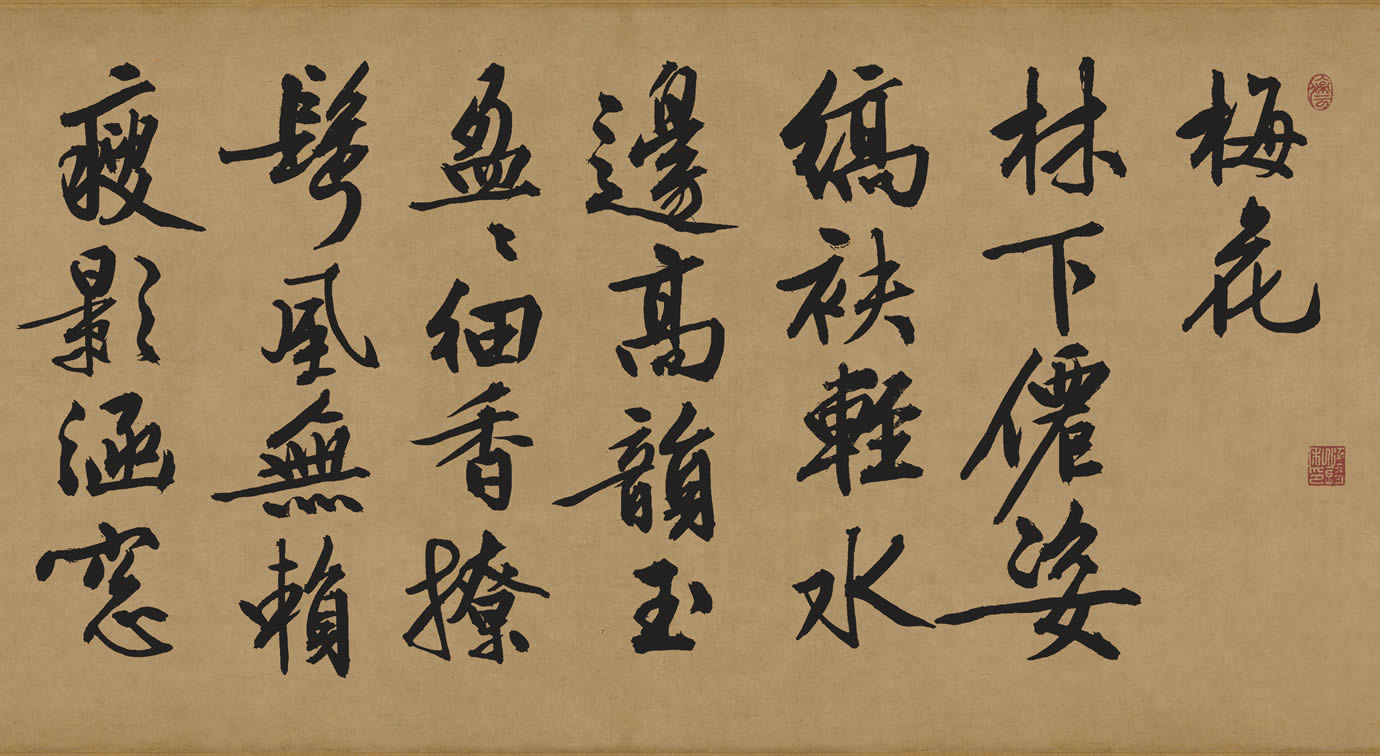 梅花
林下僊姿
縞袂輕水
邊高韻玉
盈〻細香撩
髩風無賴
瘦影涵窓